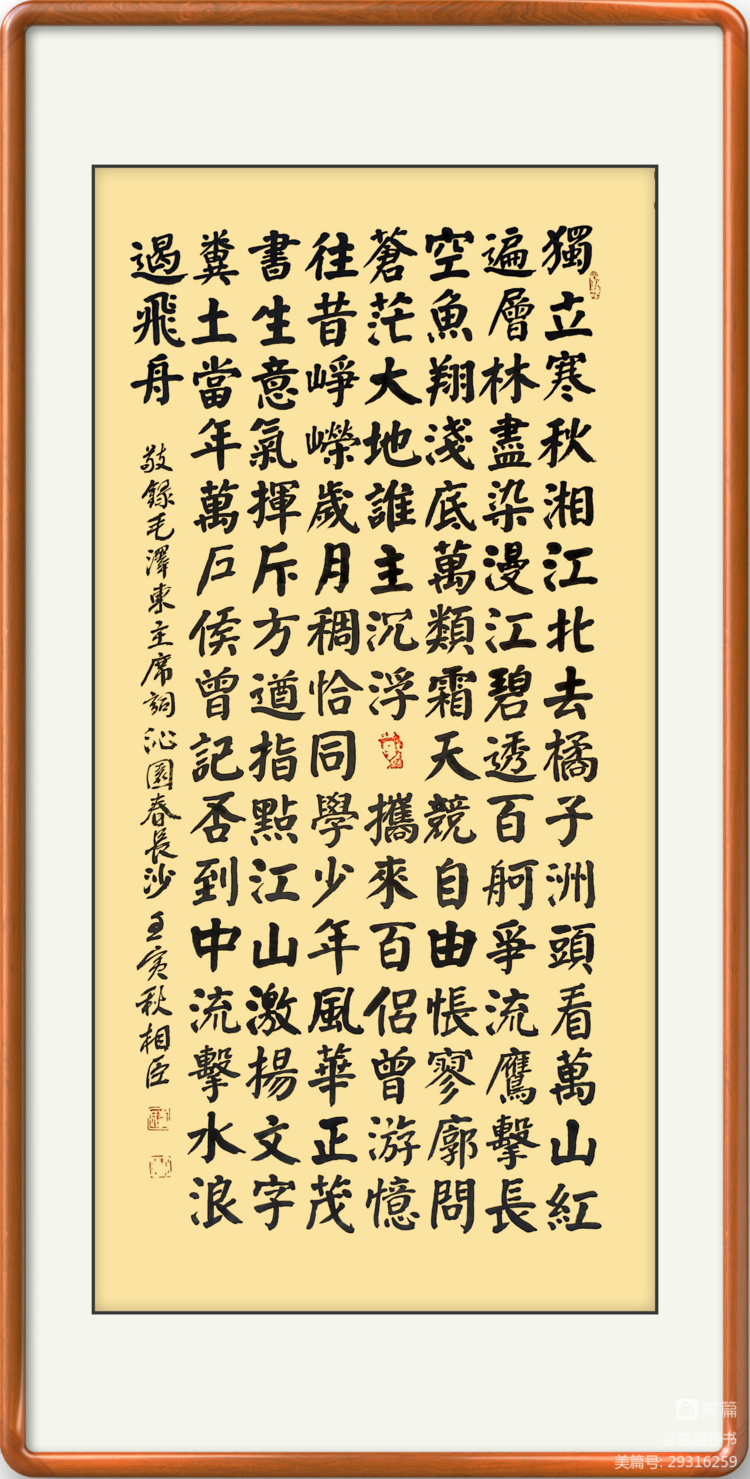 獨立寒秋湘江北去橘子洲頭看萬山紅
遍層林盡染漫江碧透百舸爭流鷹擊長
空魚翔淺底萬類霜天競自由悵寥廓問
蒼茫大地誰主沉浮攜來百侶曾游憶
往昔崢嶸歲月稠恰同學少年風華正茂
書生意氣揮斥方遒指點江山激揚文字
糞土當年萬戶侯曾記否到中流擊水浪
遏飛舟
敬錄毛澤東主席詞沁園春長沙壬寅秋相臣
美篇
美篇号: 29316259